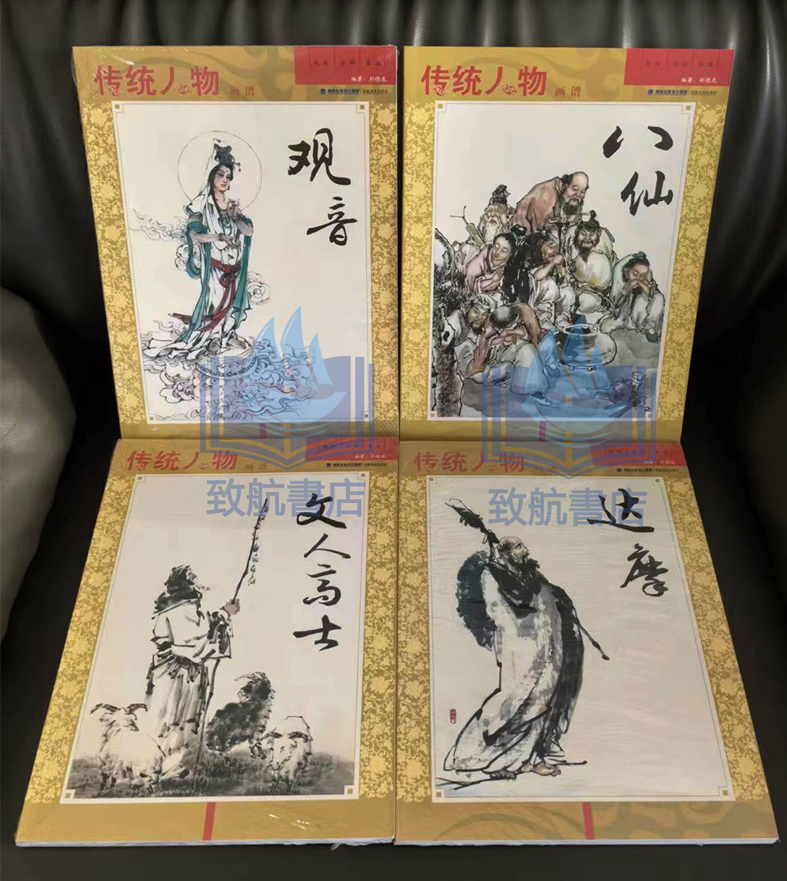 传统人物
画谱
观
音
传统人物
画谱
八
仙
致航書店
致航書店
传统人物
画谱
文
人
高
士
传统人物
画谱
达
摩